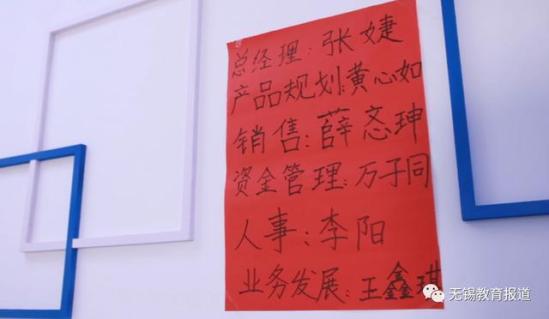 总经理：张婕
产品规划：黄心如
销售：薛忞珅
资金管理：万子同
人事：李阳
业务发展：王鑫琪
无锡教育报道